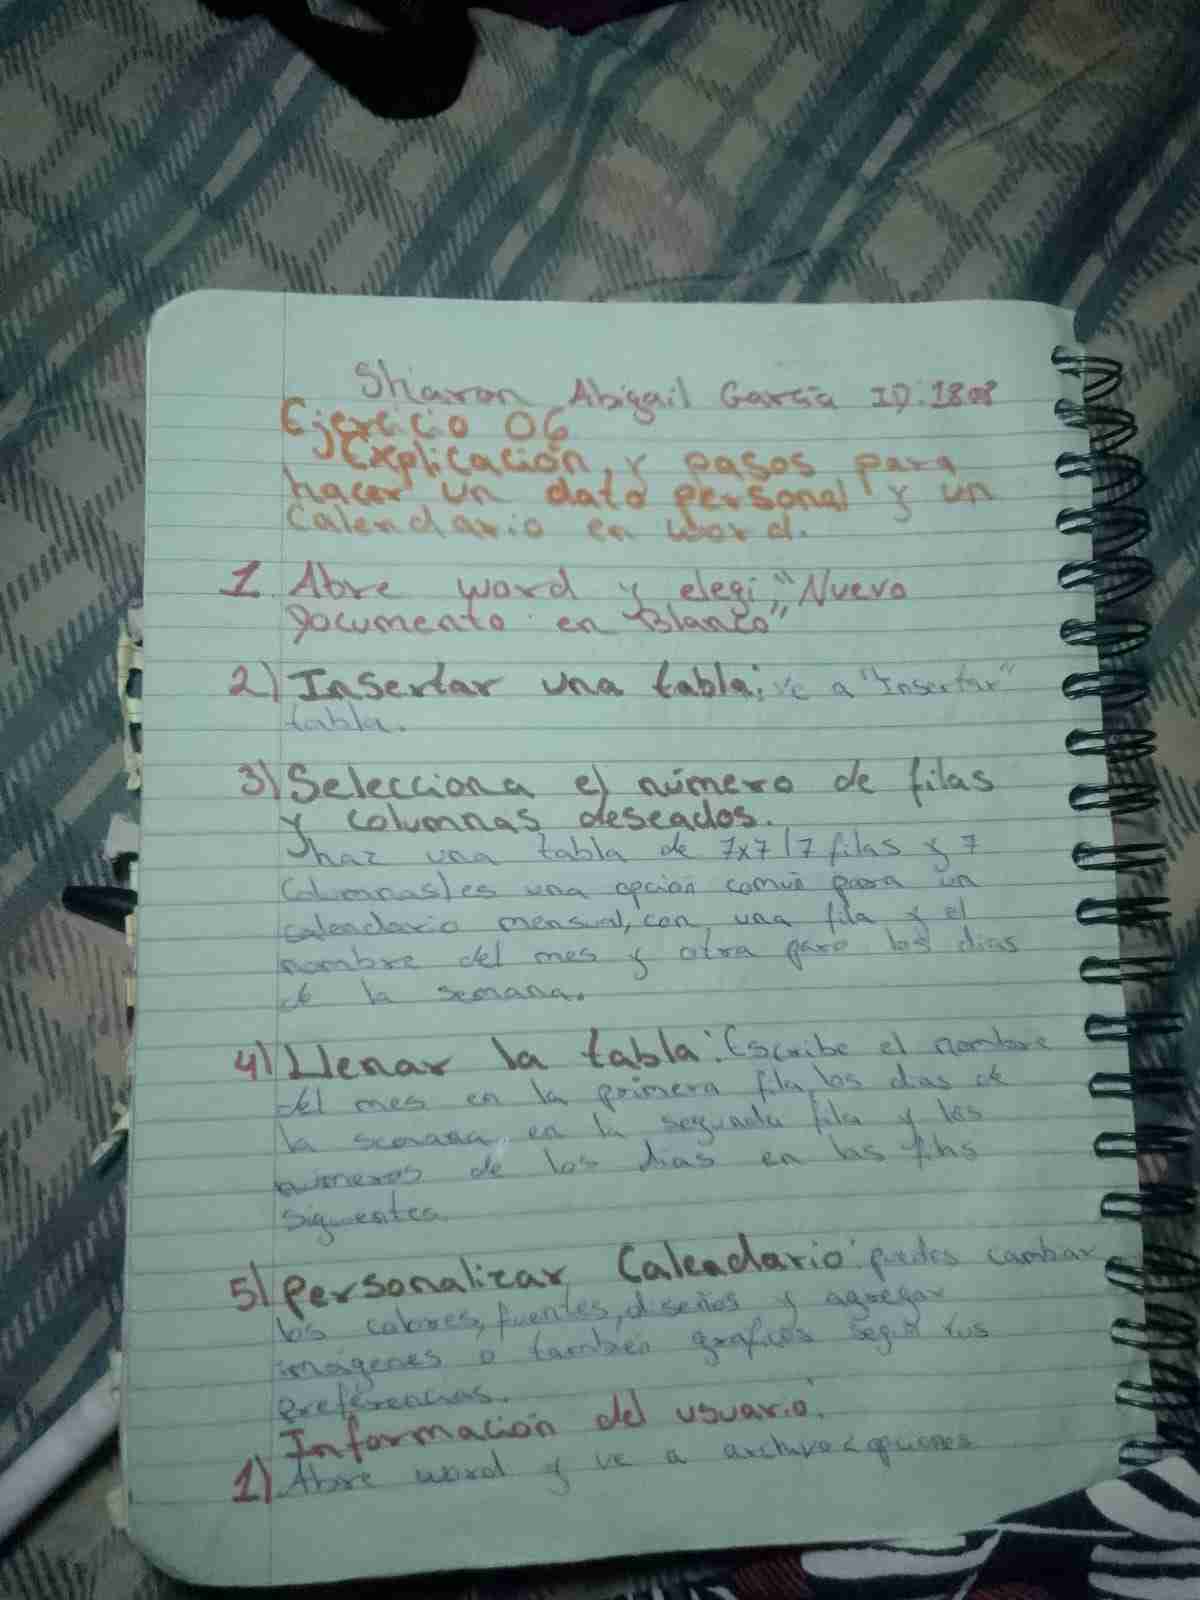 Sharon Abigail Garcia ID:1808
Ejercicio 06
Explicación, y pasos para
hacer un dato personal y un
Calendario en word.
1. Abre word y elegi, "Nuevo
Documento en Blanco"
2) Insertar una tabla: ve a "Insertar"
tabla.
3) Selecciona el número de filas
y columnas deseados.
haz una tabla de 7x7 (7 filas y 7
Columnas) es una opción común para un
calendario mensual, con una fila y el
nombre del mes y otra para los dias
de la semana.
4) Llenar la tabla: Escribe el nombre
del mes en la primera fila, los dias de
la semana en la segunda fila y los
números de los dias en las filas
siguientes.
5) personalizar Calendario: puedes cambiar
los colores, fuentes, diseños y agregar
imágenes o también graficos según tus
preferencias.
Información del usuario:
1) Abre word y ve a archivo < opciones